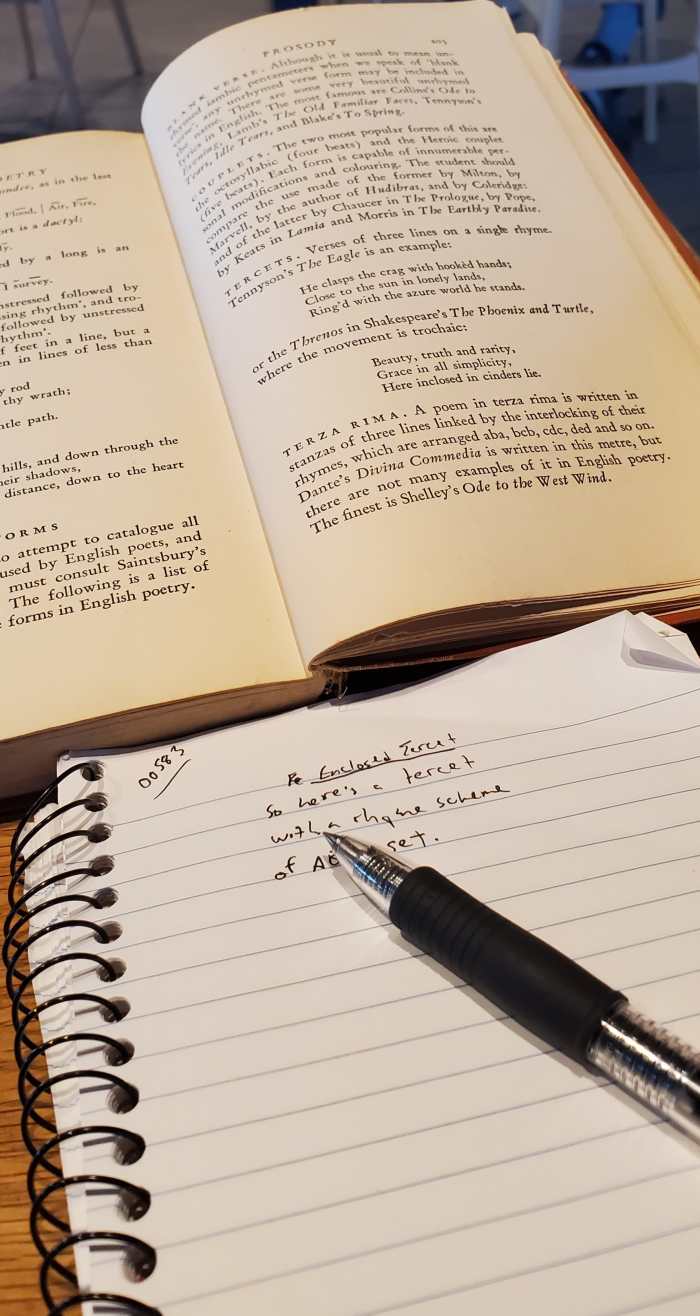 OETRY
ondre, as in the last
Flood, | Air, Fire,
ort is a dactyl:
ly.
ed by a long is an
I survey.
nstressed followed by
sing rhythm', and tro-
followed by unstressed
hythm'.
f feet in a line, but a
en in lines of less than
y rod
thy wrath;
ntle path.
hills, and down through the
heir shadows,
distance, down to the heart
ORMS
o attempt to catalogue all
used by English poets, and
must consult Saintsbury's
The following is a list of
forms in English poetry.
PROSODY
BLANK VERSE. Although it is usual to mean un-
rhymed iambic pentameters when we speak of 'blank
verse', any unrhymed verse form may be included in
the name. There are some very beautiful unrhymed
lyrics in English. The most famous are Collins's Ode to
Evening, Lamb's The Old Familiar Faces, Tennyson's
Tears, Idle Tears, and Blake's To Spring.
COUPLETS. The two most popular forms of this are
the octosyllabic (four beats) and the Heroic couplet
(five beats). Each form is capable of innumerable per-
sonal modifications and colouring. The student should
compare the use made of the former by Milton, by
Marvell, by the author of Hudibras, and by Coleridge:
and of the latter by Chaucer in The Prologue, by Pope,
by Keats in Lamia and Morris in The Earthly Paradise.
TERCETS. Verses of three lines on a single rhyme.
Tennyson's The Eagle is an example:
He clasps the crag with hookèd hands;
Close to the sun in lonely lands,
Ring'd with the azure world he stands.
or the Threnos in Shakespeare's The Phoenix and Turtle,
where the movement is trochaic:
Beauty, truth and rarity,
Grace in all simplicity,
Here inclosed in cinders lie.
TERZA RIMA. A poem in terza rima is written in
stanzas of three lines linked by the interlocking of their
rhymes, which are arranged aba, bcb, cdc, ded and so on.
Dante's Divina Commedia is written in this metre, but
there are not many examples of it in English poetry.
The finest is Shelley's Ode to the West Wind.
00583
Re Enclosed Tercet
So here's a tercet
with a rhyme scheme
of set.